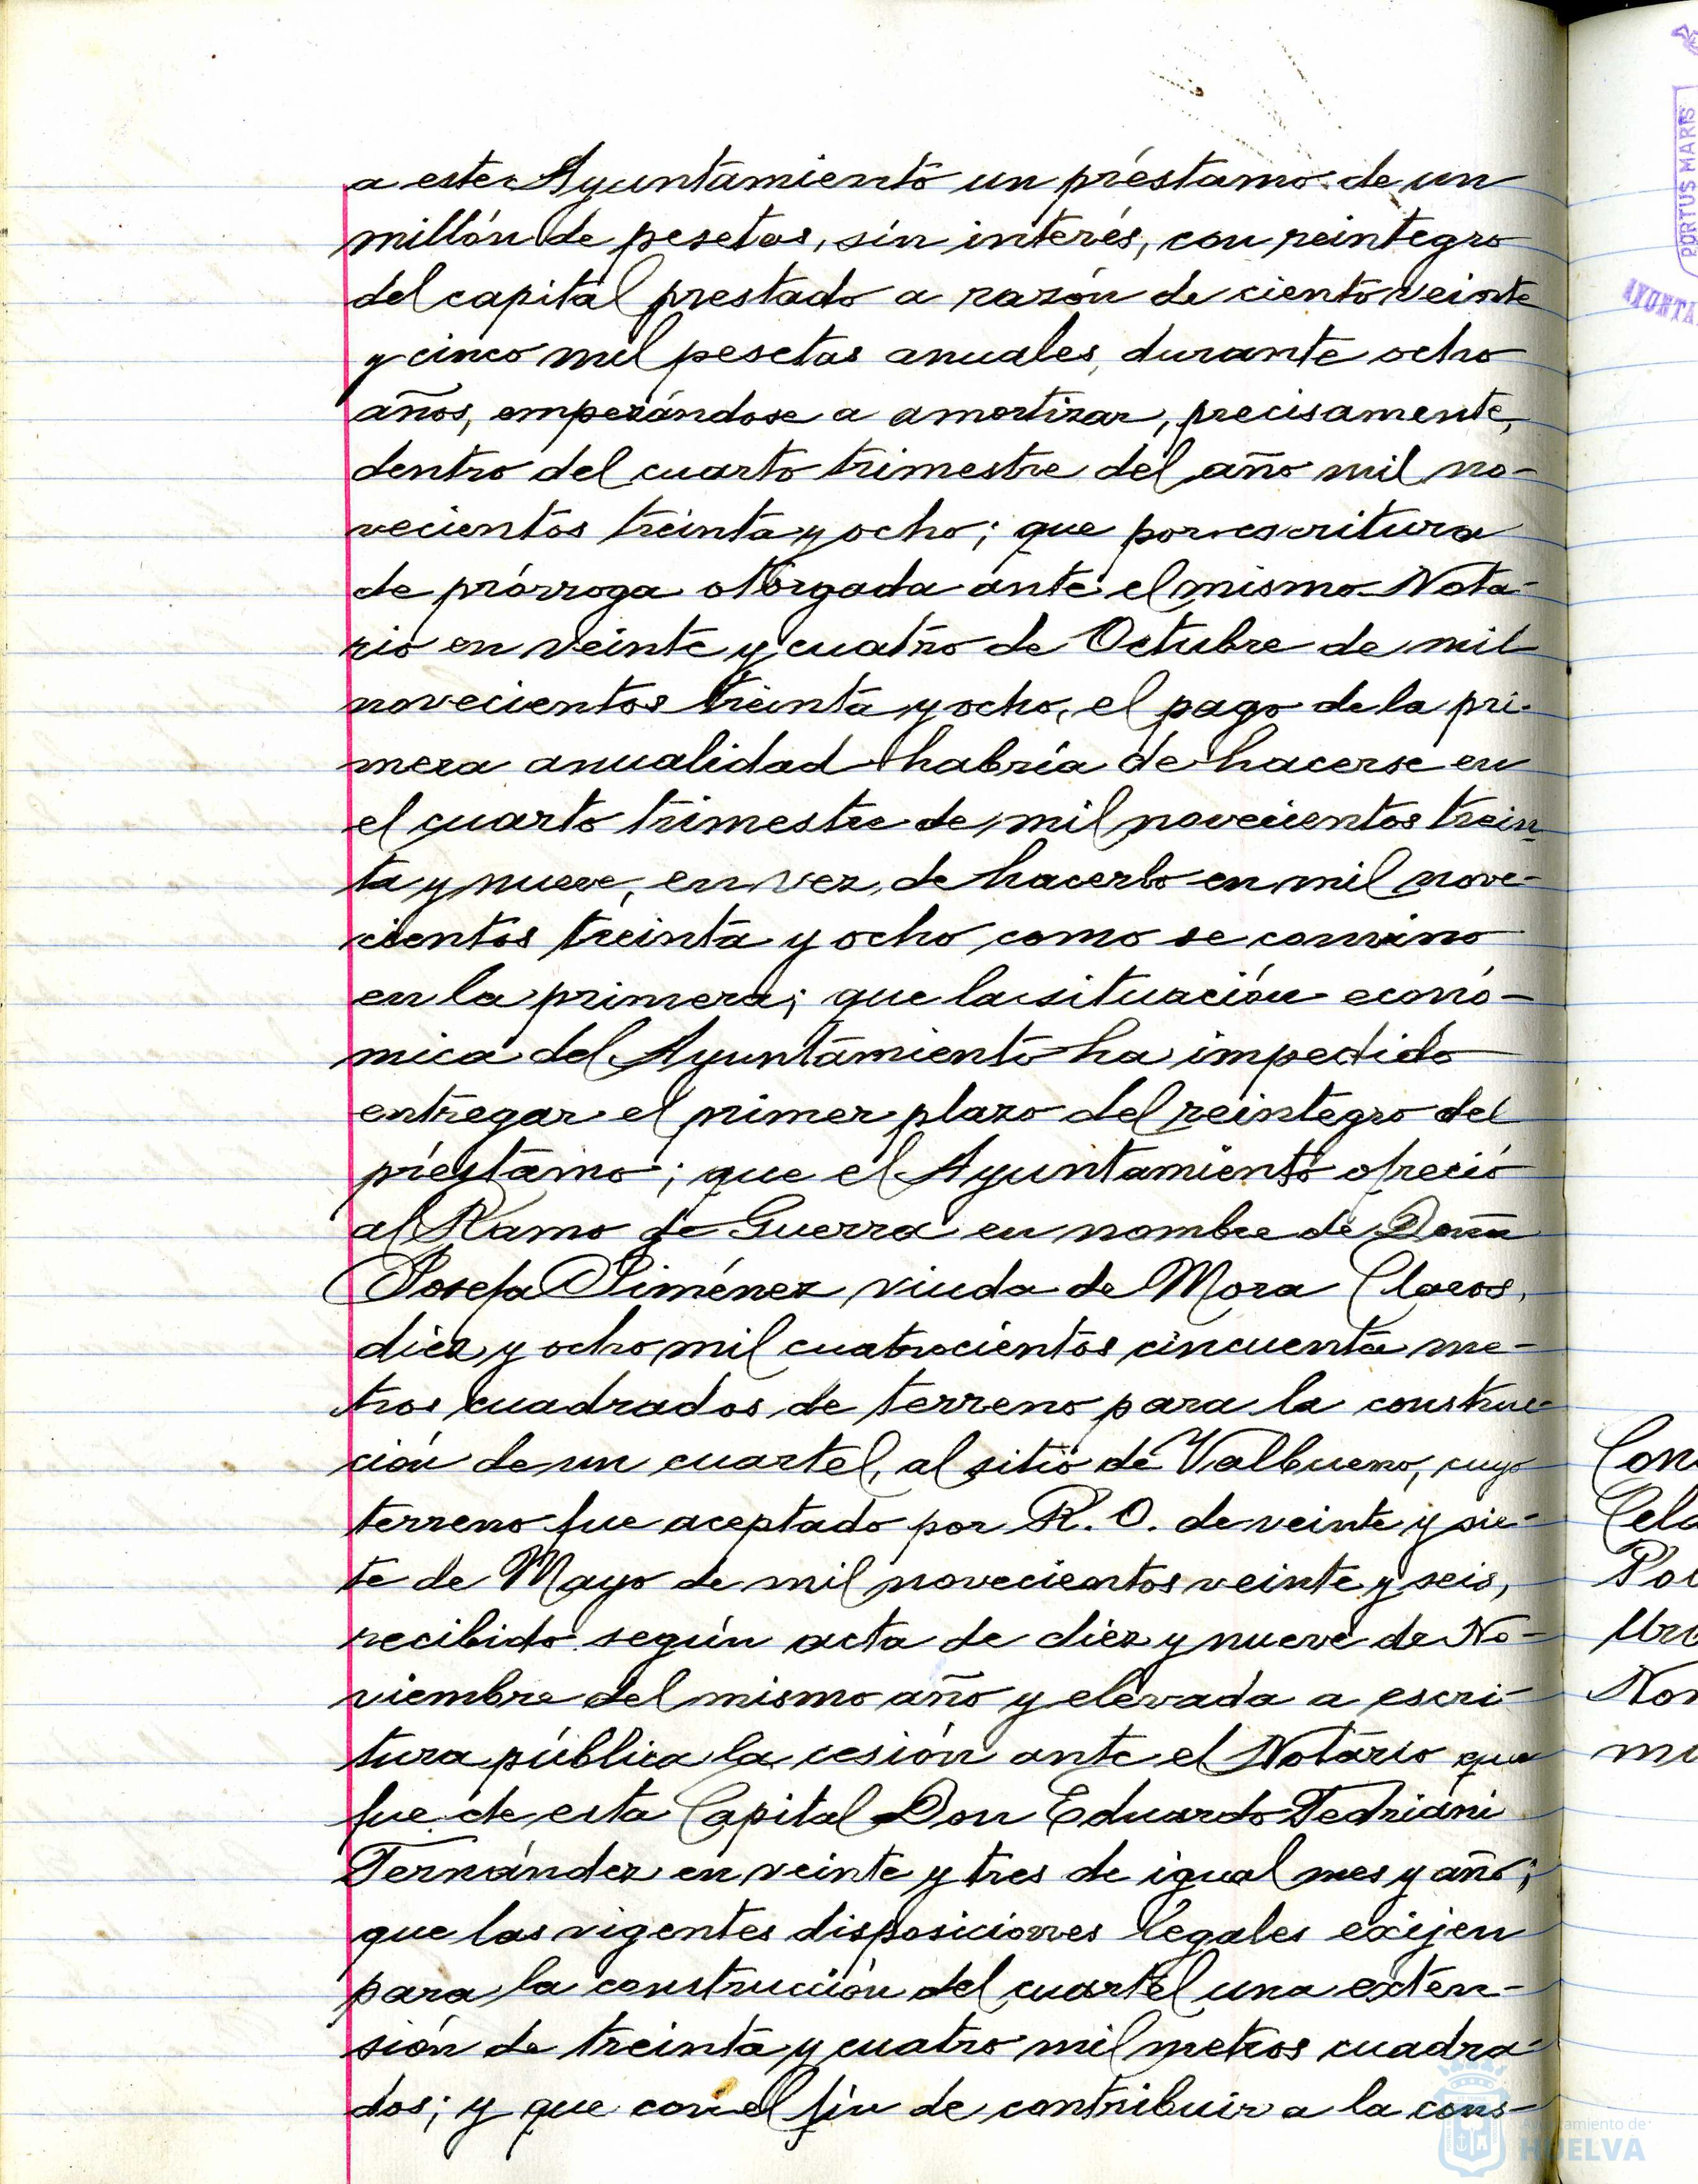 a este Ayuntamiento un préstamo de un
millón de pesetas, sin interés, con reintegro
del capital prestado a razón de ciento veinte
y cinco mil pesetas anuales, durante ocho
años, empezándose a amortizar, precisamente,
dentro del cuarto trimestre del año mil no-
vecientos treinta y ocho; que por escritura
de prórroga otorgada ante el mismo Nota-
rio en veinte y cuatro de Octubre de mil
novecientos treinta y ocho, el pago de la pri-
mera anualidad habría de hacerse en
el cuarto trimestre de mil novecientos trein-
ta y nueve, en vez de hacerlo en mil nove-
cientos treinta y ocho como se convino
en la primera; que la situación econó-
mica del Ayuntamiento ha impedido
entregar el primer plazo del reintegro del
préstamo; que el Ayuntamiento ofreció
al Ramo de Guerra en nombre de Doña
Josefa Jiménez viuda de Mora Claros,
diez y ocho mil cuatrocientos cincuenta me-
tros cuadrados de terreno para la construc-
ción de un cuartel, al sitio de Valbueno, cuyo
terreno fue aceptado por R. O. de veinte y sie-
te de Mayo de mil novecientos veinte y seis,
recibido según acta de diez y nueve de No-
viembre del mismo año y elevada a escri-
tura pública la cesión ante el Notario que
fue de esta Capital Don Eduardo Fedriani
Fernández en veinte y tres de igual mes y año;
que las vigentes disposiciones legales exijen
para la construcción del cuartel una exten-
sión de treinta y cuatro mil metros cuadra-
dos; y que con el fin de contribuir a la cons-
PORTUS MARIS
AYUNTA
Con
Cela
Nom
mi
Ayuntamiento de
HUELVA